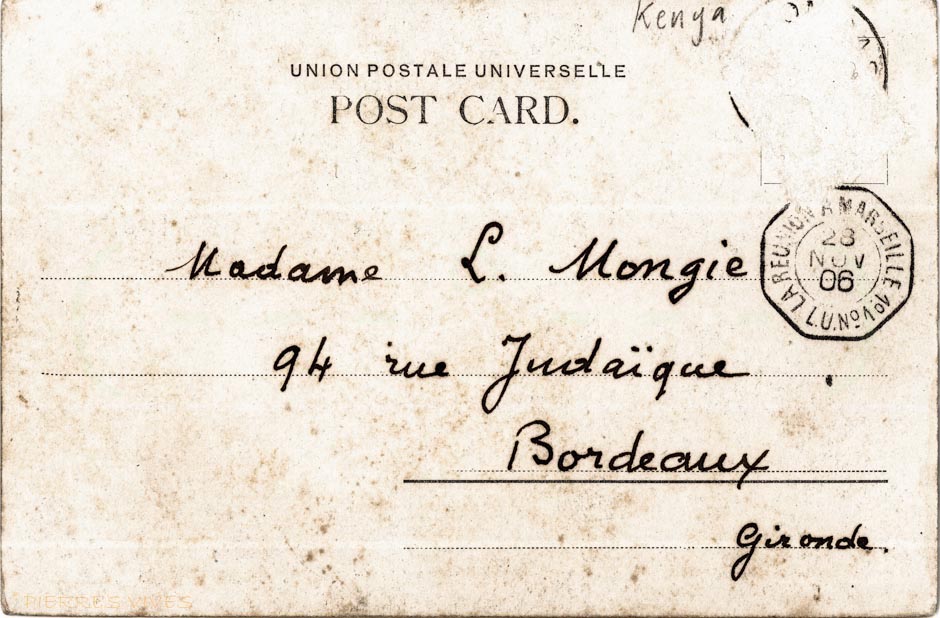 Kenya
UNION POSTALE UNIVERSELLE
POST CARD.
LA REUNION A MARSEILLE
28
NOV
06
L.U.Nº
Madame L. Mongie
94 rue Judaïque
Bordeaux
Gironde.
PIERRES VIVES